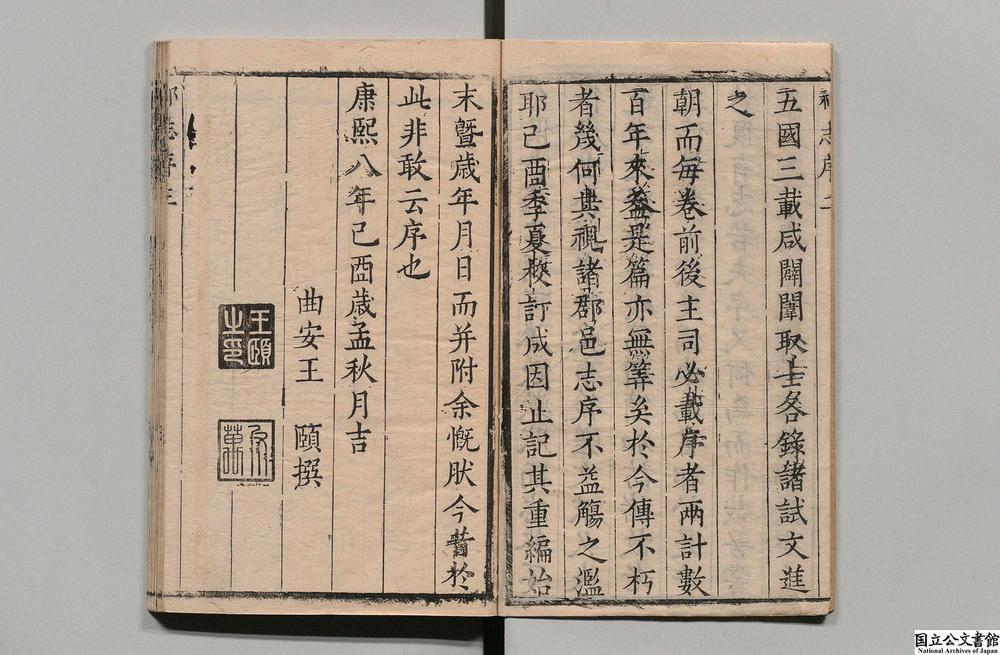 志序二
五國三載咸闈闈取士各錄諸試文進
之
朝而每卷前後主司必載序者兩計數
百年來益是篇亦無筭矣於今傳不朽
者幾何與視諸郡邑志序不益觴之濫
耶己酉季夏校訂成因止記其重編始
末暨歲年月日而并附余慨肰今昔於
此非敢云序也
康熙八年己酉歲孟秋月吉
曲安王 頤撰
王頤之印
志序三
国立公文書館
National Archives of Japan